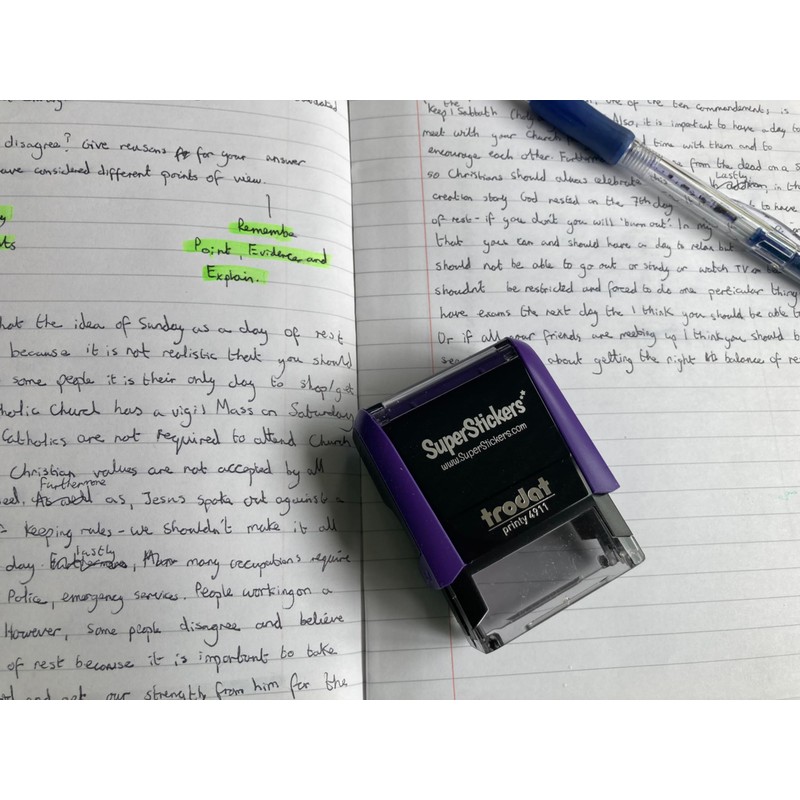 disagree? Give reasons for your answer
have considered different points of view.
Remembe
Point, Evidence and
Explain.
that the idea of Sunday as a day of rest
because it is not realistic that you should
some people it is their only day to shop/get
Catholic Church has a vigil Mass on Saturday
Catholics are not required to attend Church
Christian values are not accepted by all
Furthermore
as, Jesus spoke out against
keeping rules - we shouldn't make it all
Lastly
day. many occupations require
Police, emergency services. People working on a
However, some people disagree and believe
of rest because it is important to take
and get our strength from him for the
the
'keep Sabbath one of the ten commandments, is
Also, it is important to have a day to
meet with your Church time with them and to
encourage each other. from the dead on a
Lastly
so Christians should always celebrate in the
creation story God rested on the 7th day to have
of rest - if you don't you will 'burn out'. In my
that you can and should have a day to relax but
should not be able to go out or study or watch TV or
shouldnt be restricted and forced to do one perticular thing
have exams the next day the I think you should be able
Or if all your friends are meeting up I think you should
about getting the right balance of
SuperStickers
www.SuperStickers.com
trodat
printy 4911